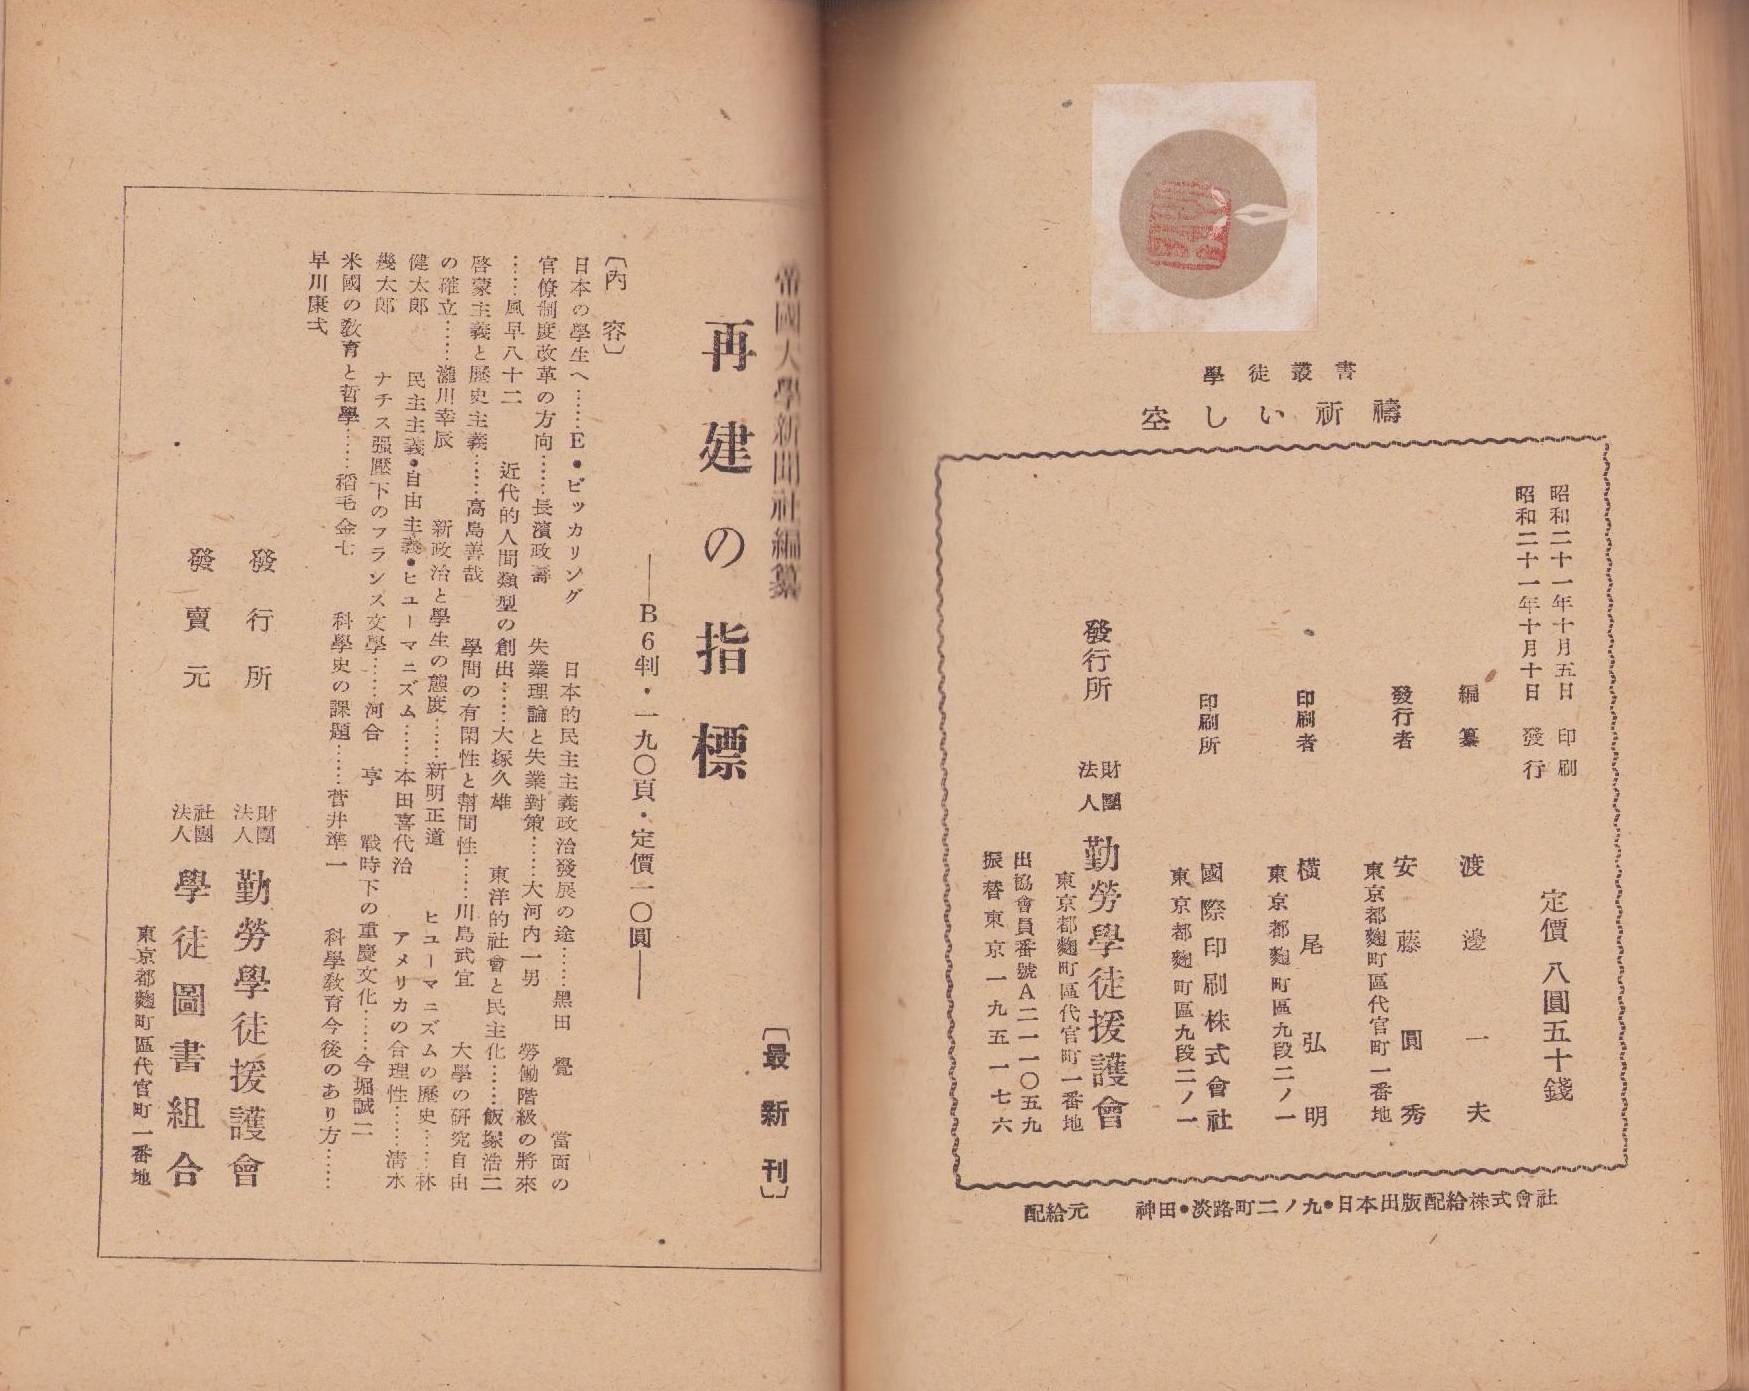 學徒叢書
空しい祈禱
昭和二十一年十月五日 印刷
昭和二十一年十月十日 發行
定價 八圓五十錢
編纂 渡邊一夫
發行者 安藤圓秀
東京都麴町區代官町一番地
印刷者 橫尾弘明
東京都麴町區九段二ノ一
印刷所 國際印刷株式會社
東京都麴町區九段二ノ一
發行所 財團法人 勤勞學徒援護會
東京都麴町區代官町一番地
出協會員番號A二一一〇五九
振替東京一九五一七六
配給元 神田・淡路町二ノ九・日本出版配給株式會社
帝國大學新聞社編纂
〔最新刊〕
再建の指標
——B6判・一九〇頁・定價一〇圓——
〔內容〕
日本の學生へ……E・ビッカリング 日本的民主主義政治發展の途……黑田 覺 當面の
官僚制度改革の方向……長濱政壽 失業理論と失業對策……大河內一男 勞働階級の將來
……風早八十二 近代的人間類型の創出……大塚久雄 東洋的社會と民主化……飯塚浩二
啓蒙主義と歷史主義……高島善哉 學問の有閑性と幇間性……川島武宜 大學の硏究自由
の確立……瀧川幸辰 新政治と學生の態度……新明正道 ヒユーマニズムの歷史……林
健太郎 民主主義・自由主義・ヒューマニズム……本田喜代治 アメリカの合理性……淸水
幾太郎 ナチス强壓下のフランス文學……河合 亨 戰時下の重慶文化……今堀誠二
米國の敎育と哲學……稻毛金七 科學史の課題……菅井準一 科學敎育今後のあり方……
早川康弌
發行所 財團法人 勤勞學徒援護會
發賣元 社團法人 學徒圖書組合
東京都麴町區代官町一番地